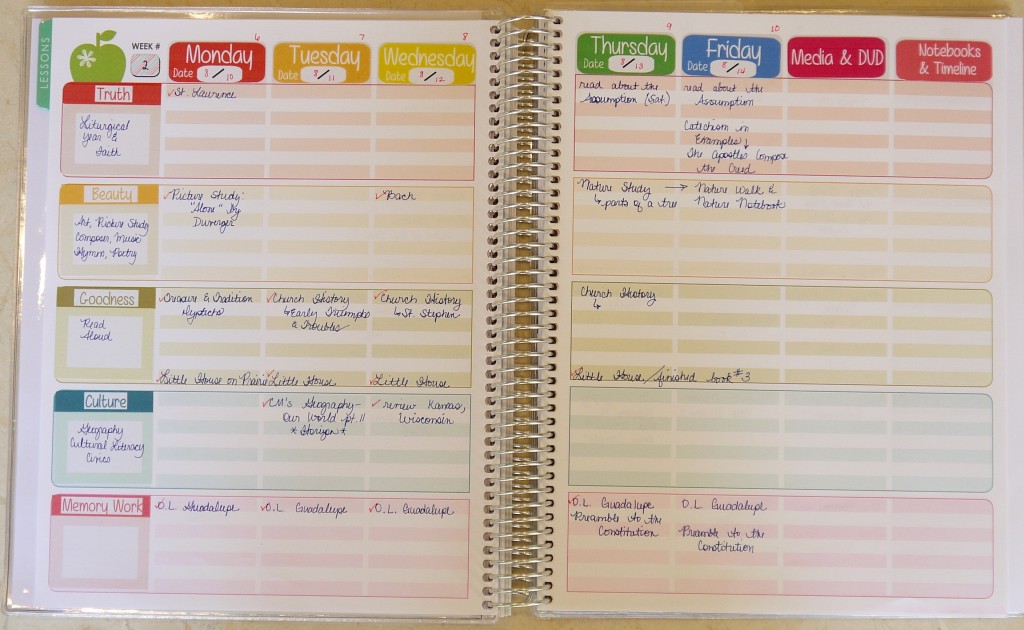 LESSONS
WEEK #
2
6
Monday
Date 8/10
7
Tuesday
Date 8/11
8
Wednesday
Date 8/12
9
Thursday
Date 8/13
10
Friday
Date 8/14
Media & DVD
Notebooks
& Timeline
Truth
Liturgical
Year &
Faith
St. Lawrence
read about the
Assumption (Sat.)
read about the
Assumption
Catechism in
Examples ↓
The Apostles Compose
the Creed
Beauty
Art, Picture Study
Composer, Music
Hymns, Poetry
Picture Study:
"Alone" by
Duverger
Bach
Nature Study →
↳ parts of a tree
Nature Walk &
Nature Notebook
Goodness
Read
Aloud
& Tradition
Church History
↳ Early Triumphs
& Troubles
Church History
↳ St. Stephen
Church History
↳
Little House on Prairie
Little House
Little House
Little House/finished book #3
Culture
Geography
Cultural Literacy
Civics
CM's Geography-
Our World pt. II
*Horizon*
review Kansas,
Wisconsin
Memory Work
O.L. Guadalupe
O.L. Guadalupe
O.L. Guadalupe
O.L. Guadalupe
Preamble to the
Constitution
O.L. Guadalupe
Preamble to the
Constitution